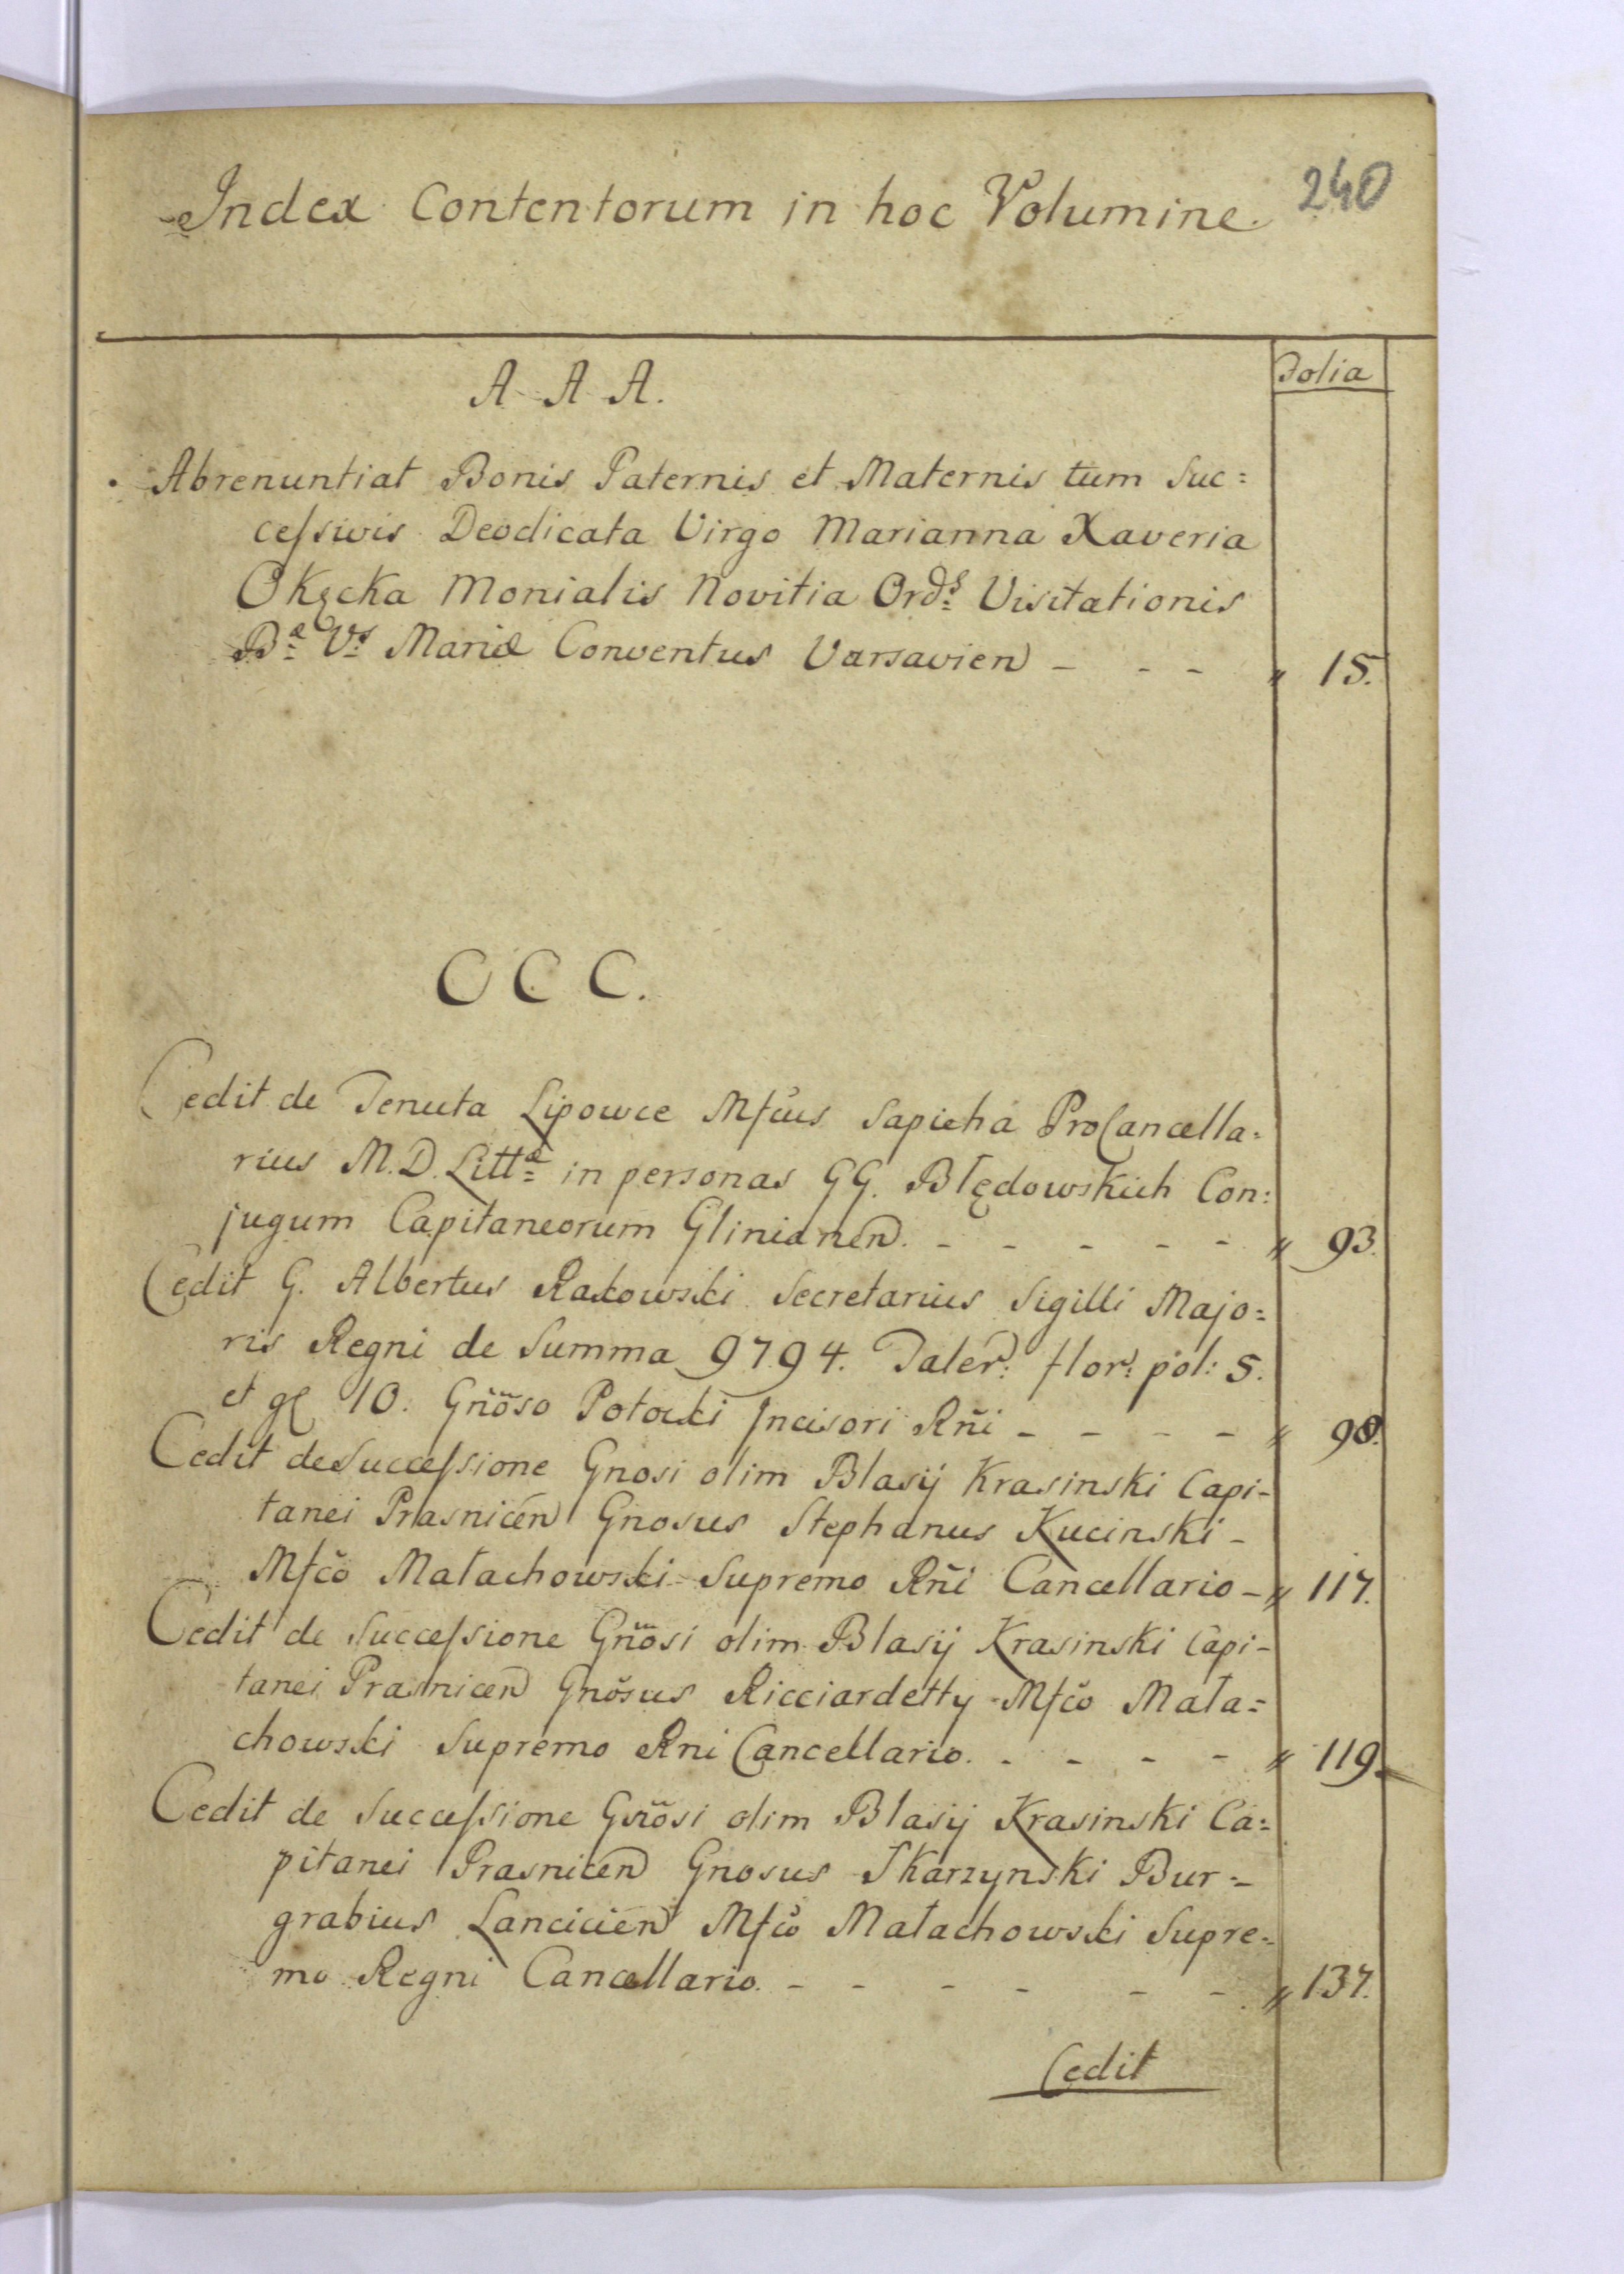 240
Index Contentorum in hoc Volumine.
Folia
A A A.
Abrenuntiat Bonis Paternis et Maternis tum Suc=
ceſsivis Deodicata Virgo Marianna Xaveria
Okęcka Monialis Novitia Ord:s Visitationis
B:æ V:s Mariæ Conventus Varsavien - - - 〃 15.
C C C.
Cedit de Tenuta Lipowce Mfcus Sapieha ProCancella=
rius M.D. Litt:æ in personas GG. Błędowskich Con=
jugum Capitaneorum Glinianen. - - - - - 〃 93.
Cedit G. Albertus Rakowski Secretarius Sigilli Majo=
ris Regni de Summa 9794. Taler: flor: pol: 5.
et gl 10. Gñõso Potocki Incisori Rñi - - - - 〃 98.
Cedit de Succeſsione Gnosi olim Blasij Krasinski Capi-
tanei Prasnicen Gnosus Stephanus Kucinski -
Mfčo Małachowski Supremo Rñi Cancellario - 〃 117.
Cedit de Succeſsione Gñõsi olim Blasij Krasinski Capi-
tanei Prasnicen Gnõsus Ricciardetty Mfčo Mała=
chowski Supremo Rni Cancellario. - - - - 〃 119.
Cedit de Succeſsione Gñõsi olim Blasij Krasinski Ca=
pitanei Prasnicen Gnosus Skarzynski Bur=
grabius Lancicien Mfčo Małachowski Supre=
mo Regni Cancellario. - - - - - - 〃 137.
Cedit